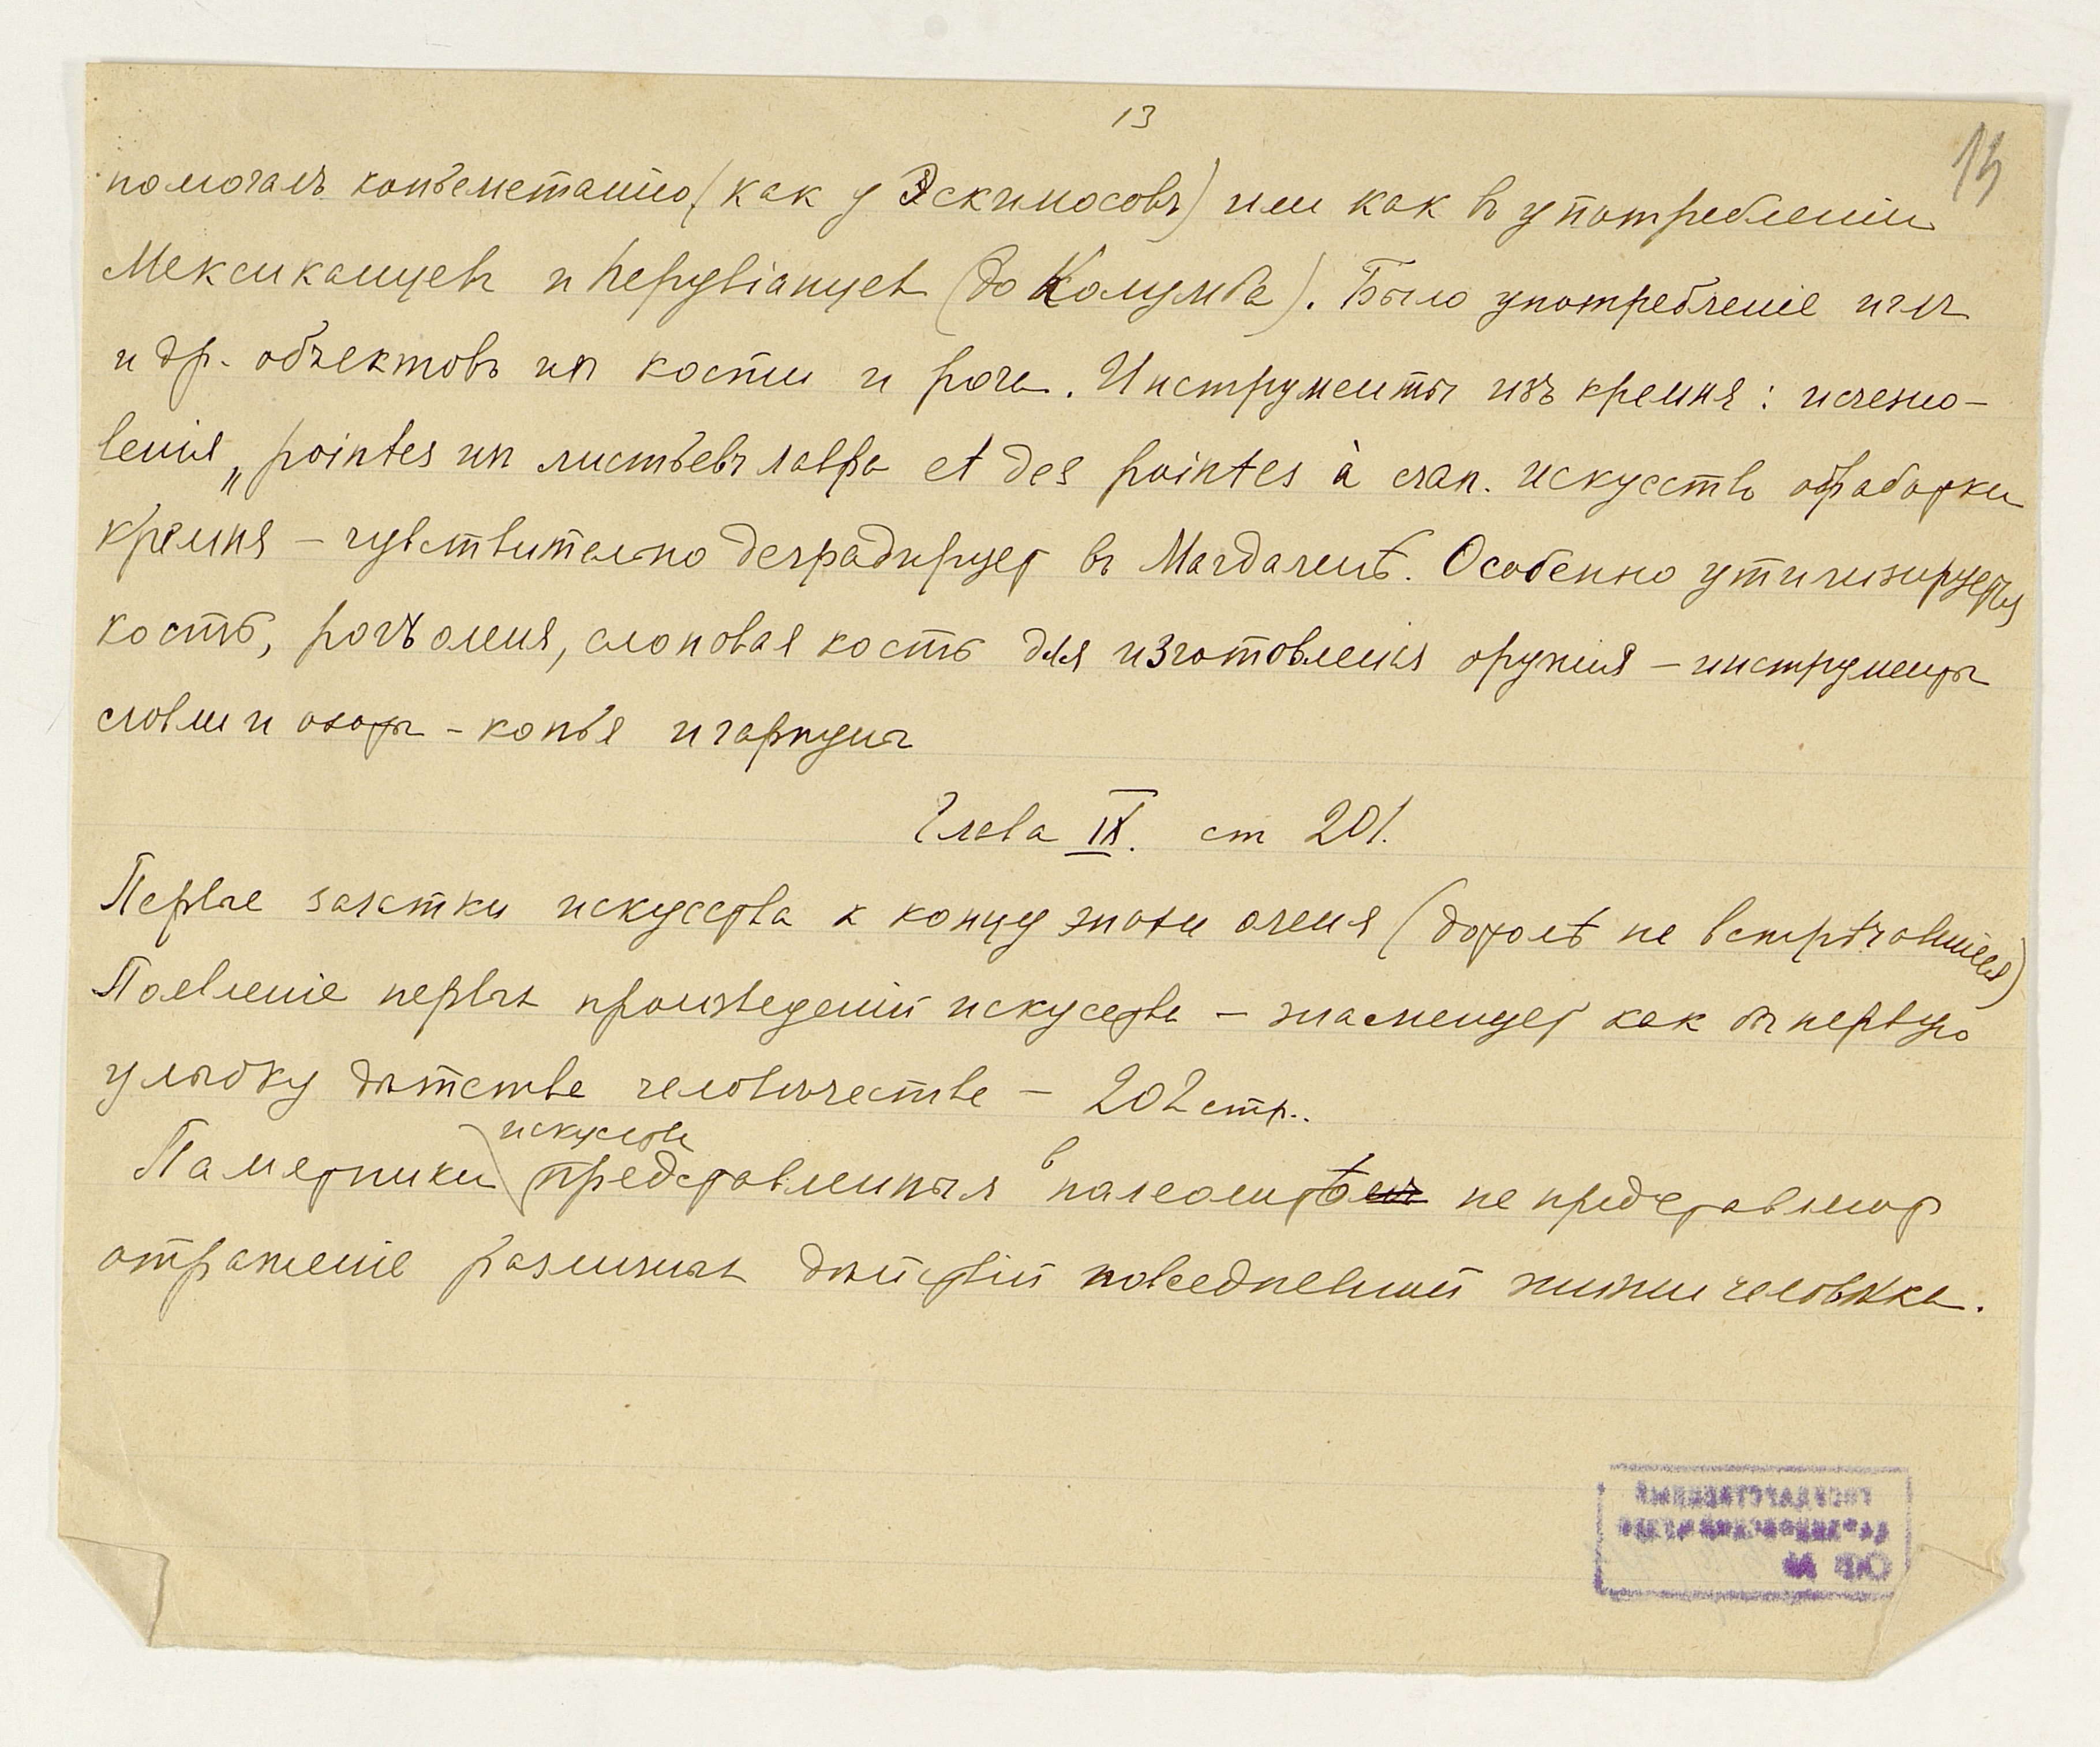 13
13
помогалъ копьеметанію (как у Эскимосовъ) или как въ употребленіи
Мексиканцев и Перувіанцев (до Колумба). Было употребленіе игл
и др. объектовъ из кости и рога. Инструменты изъ кремня: исчезно-
венія „pointes из листьевъ лавра et des pointes à cran. искусствъ обработки
кремня – чувствительно деградирует въ Магдаленѣ. Особенно утилизируется
кость, рогъ оленя, слоновая кость для изготовленія оружія – инструменты
ловли и охоты - копья и гарпуны
Глава IX. ст 201.
Первые зачатки искусства к концу эпохи оленя (дотолѣ не встрѣчавшіеся)
Появленіе первых произведеній искусства – знаменует как бы первую
улыбку дѣтства человѣчества – 202 стр..
искусства
Памятники представленныя в палеолитѣ не представляют
отраженіе различных дѣйствій повседневной жизни человѣка.